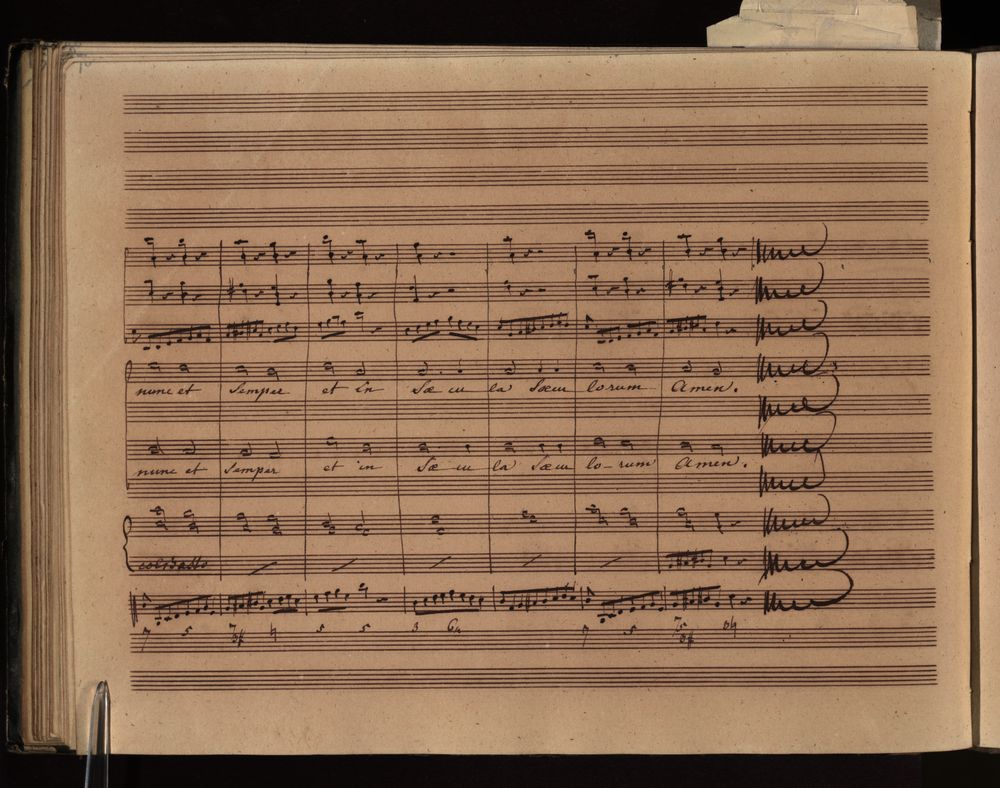 nunc et Semper et in Sæ cu la Sæcu lorum Amen.
nunc et Semper et in Sæ cu la Sæcu lo-rum Amen.
col Basso
7 5 7 5 5 3 6 7 5 7